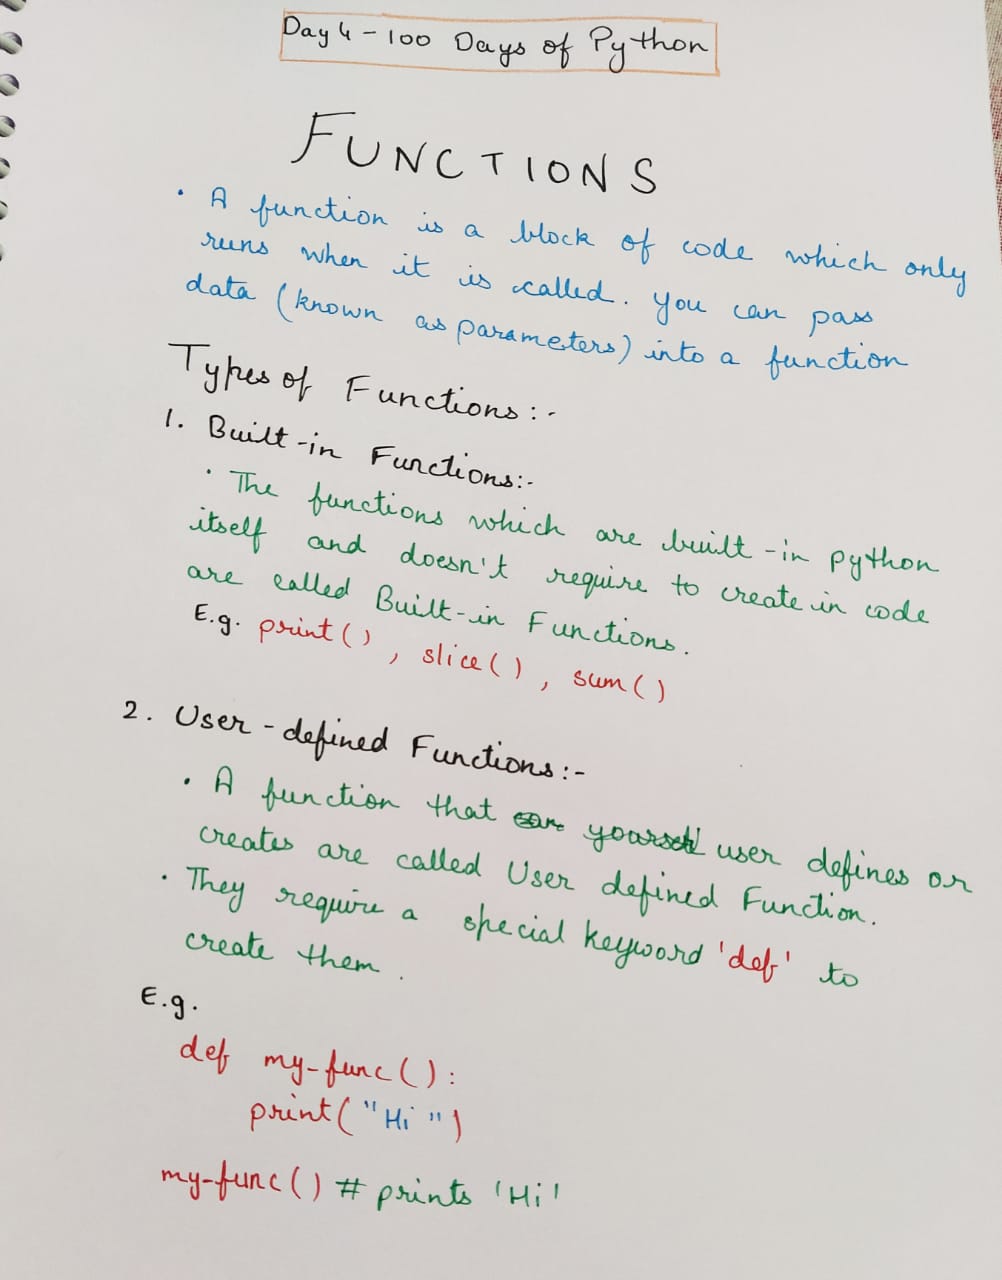 Day 4 - 100 Days of Python
FUNCTIONS
• A function is a block of code which only
runs when it is called. You can pass
data (known as parameters) into a function
Types of Functions:-
1. Built-in Functions:-
• The functions which are built-in python
itself and doesn't require to create in code
are called Built-in Functions.
E.g. print(), slice(), sum()
2. User-defined Functions:-
• A function that user defines or
creates are called User defined Function.
• They require a special keyword 'def' to
create them.
E.g.
def my-func():
print("Hi")
my-func() # prints 'Hi'